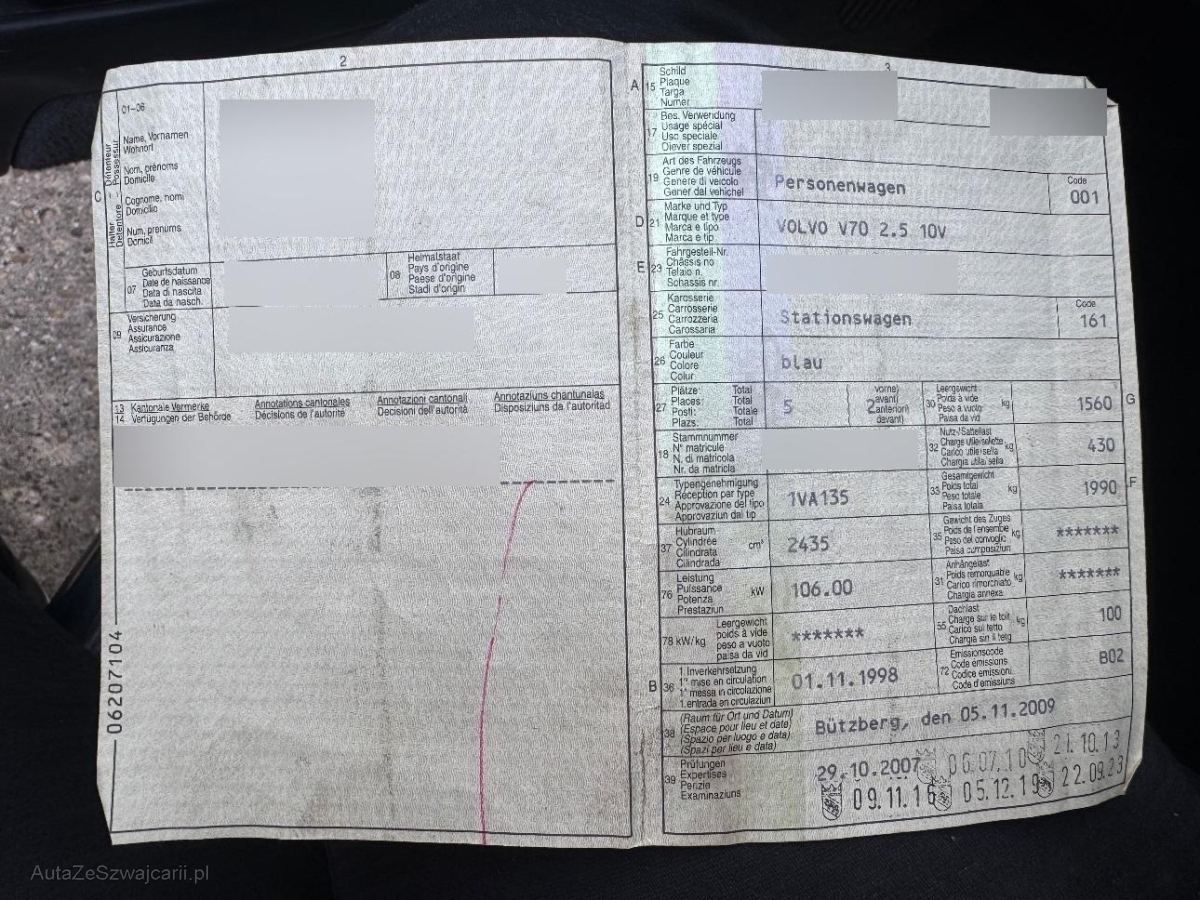 2
01-06
Name, Vornamen
Wohnort
Nom, prénoms
Domicile
Cognome, nomi
Domicilio
Num, prenums
Domicil
C
Halter Détenteur
Detentore Possessur
07
Geburtsdatum
Date de naissance
Data di nascita
Data da nasch.
08
Heimatstaat
Pays d'origine
Paese d'origine
Stadi d'origin
09
Versicherung
Assurance
Assicurazione
Assicuranza
13 Kantonale Vermerke
14 Verfügungen der Behörde
Annotations cantonales
Décisions de l'autorité
Annotazioni cantonali
Decisioni dell'autorità
Annotaziuns chantunalas
Disposiziuns da l'autoritad
06207104
3
A 15
Schild
Plaque
Targa
Numer
17
Bes. Verwendung
Usage spécial
Uso speciale
Diever spezial
19
Art des Fahrzeugs
Genre de véhicule
Genere di veicolo
Gener dal vehichel
Personenwagen
Code
001
D 21
Marke und Typ
Marque et type
Marca e tipo
Marca e tip
VOLVO V70 2.5 10V
E 23
Fahrgestell-Nr.
Châssis no
Telaio n.
Schassis nr.
25
Karosserie
Carrosserie
Carrozzeria
Carossaria
Stationswagen
Code
161
26
Farbe
Couleur
Colore
Colur
blau
27
Plätze: Total
Places: Total
Posti: Totale
Plazs: Total
5
2
vorne)
avant)
anteriori)
davant)
30
Leergewicht
Poids à vide
Peso a vuoto
Paisa da vid
kg
1560
G
18
Stammnummer
N° matricule
N. di matricola
Nr. da matricla
32
Nutz-/Sattellast
Charge utile/sellette
Carico utile/sella
Chargia utila/sella
kg
430
24
Typengenehmigung
Réception par type
Approvazione del tipo
Approvaziun dal tip
1VA135
33
Gesamtgewicht
Poids total
Peso totale
Paisa totala
kg
1990
F
37
Hubraum
Cylindrée
Cilindrata
Cilindrada
cm³
2435
35
Gewicht des Zuges
Poids de l'ensemble
Peso del convoglio
Paisa cumposiziun
kg
*******
76
Leistung
Puissance
Potenza
Prestaziun
kW
106.00
31
Anhängelast
Poids remorquable
Carico rimorchiato
Chargia annexa
kg
*******
78 kW/kg
Leergewicht
poids à vide
peso a vuoto
paisa da vid
*******
55
Dachlast
Charge sur le toit
Carico sul tetto
Chargia sin il tetg
kg
100
B 36
1. Inverkehrsetzung
1re mise en circulation
1a messa in circolazione
1. entrada en circulaziun
01.11.1998
72
Emissionscode
Code émissions
Codice emissioni
Code d'emissiuns
B02
38
(Raum für Ort und Datum)
(Espace pour lieu et date)
(Spazio per luogo e data)
(Spazi per lieu e data)
Bützberg, den 05.11.2009
39
Prüfungen
Expertises
Perizie
Examinaziuns
29.10.2007
06.07.10
21.10.13
09.11.16
05.12.19
22.09.23
AutaZeSzwajcarii.pl